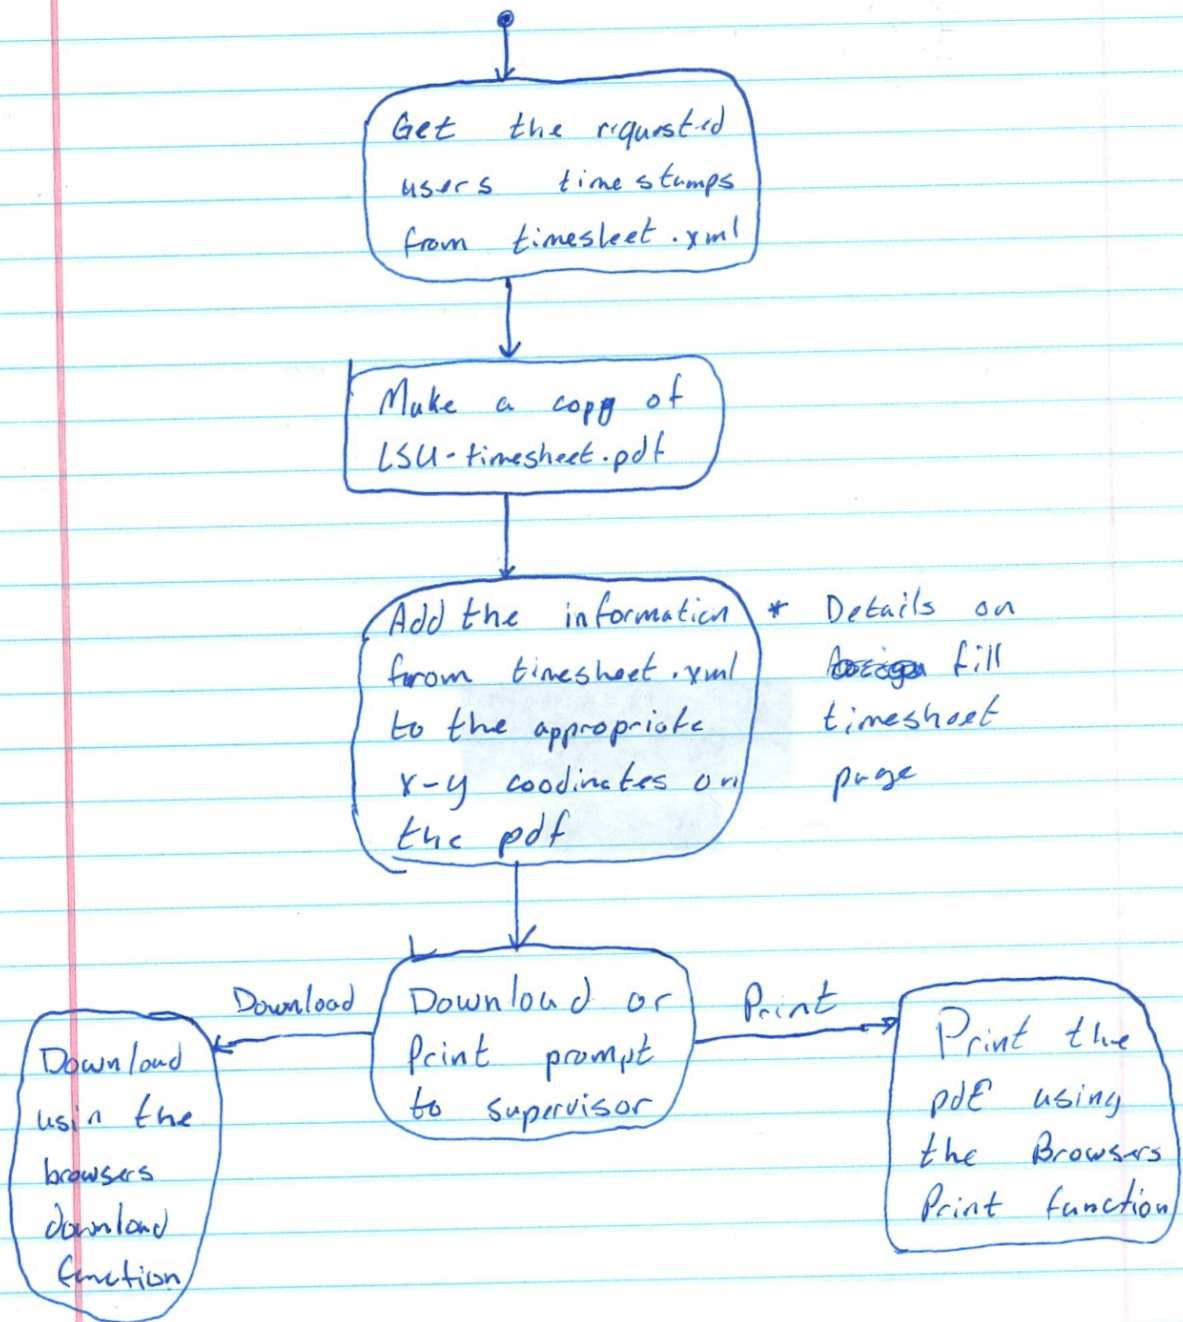 Get the requested
users timestamps
from timesleet.xml
Make a copy of
LSU-timesheet.pdf
Add the information
from timesheet.xml
to the appropriate
x-y coodinates on
the pdf
* Details on
fill
timesheet
page
Download
Download or
Print prompt
to supervisor
Print
Download
usin the
browsers
download
function
Print the
pdf using
the Browsers
Print function